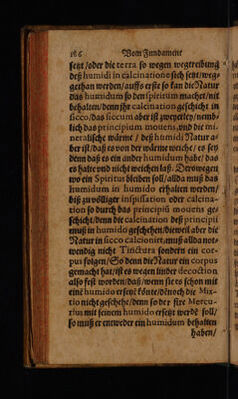 186 Vom Fundament
setzt/oder die terra so wegen wegtreibung
deß humidi in calcinatione sich setzt/weg-
gethan werden/auffs erste so kan die Natur
das humidum so den spiritum machet/nit
behalten/denn jhr calcination geschicht in
sicco/das siccum aber ist zweyerley/nemb-
lich das principium movens, und die mi-
neralische wärme/deß humidi Natur a-
ber ist/daß es von der wärme weiche/es sey
denn daß es ein ander humidum habe/das
es halte und nicht weichen laß. Derowegen
wo ein Spiritus bleiben soll/allda muß das
humidum in humido erhalten werden/
biß zu völliger inspissation oder calcina-
tion so durch das principiũ movens ge-
schicht/denn die calcination deß principii
muß in humido geschehen/dieweil aber die
Natur in sicco calcioniert/muß allda not-
wendig nicht Tinctura sondern ein cor-
pus folgen/So denn die Natur ein corpus
gemacht hat/ist es wegen linder decoction
also fest worden/daß/wenn sie es schon mit
einẽ humido ersetzẽ könte/dẽnoch die Mix-
tio nicht geschehe/denn so der fixe Mercu-
rius mit seinem humido ersetzt werdẽ soll/
so muß er entweder ein humidum behalten
haben/